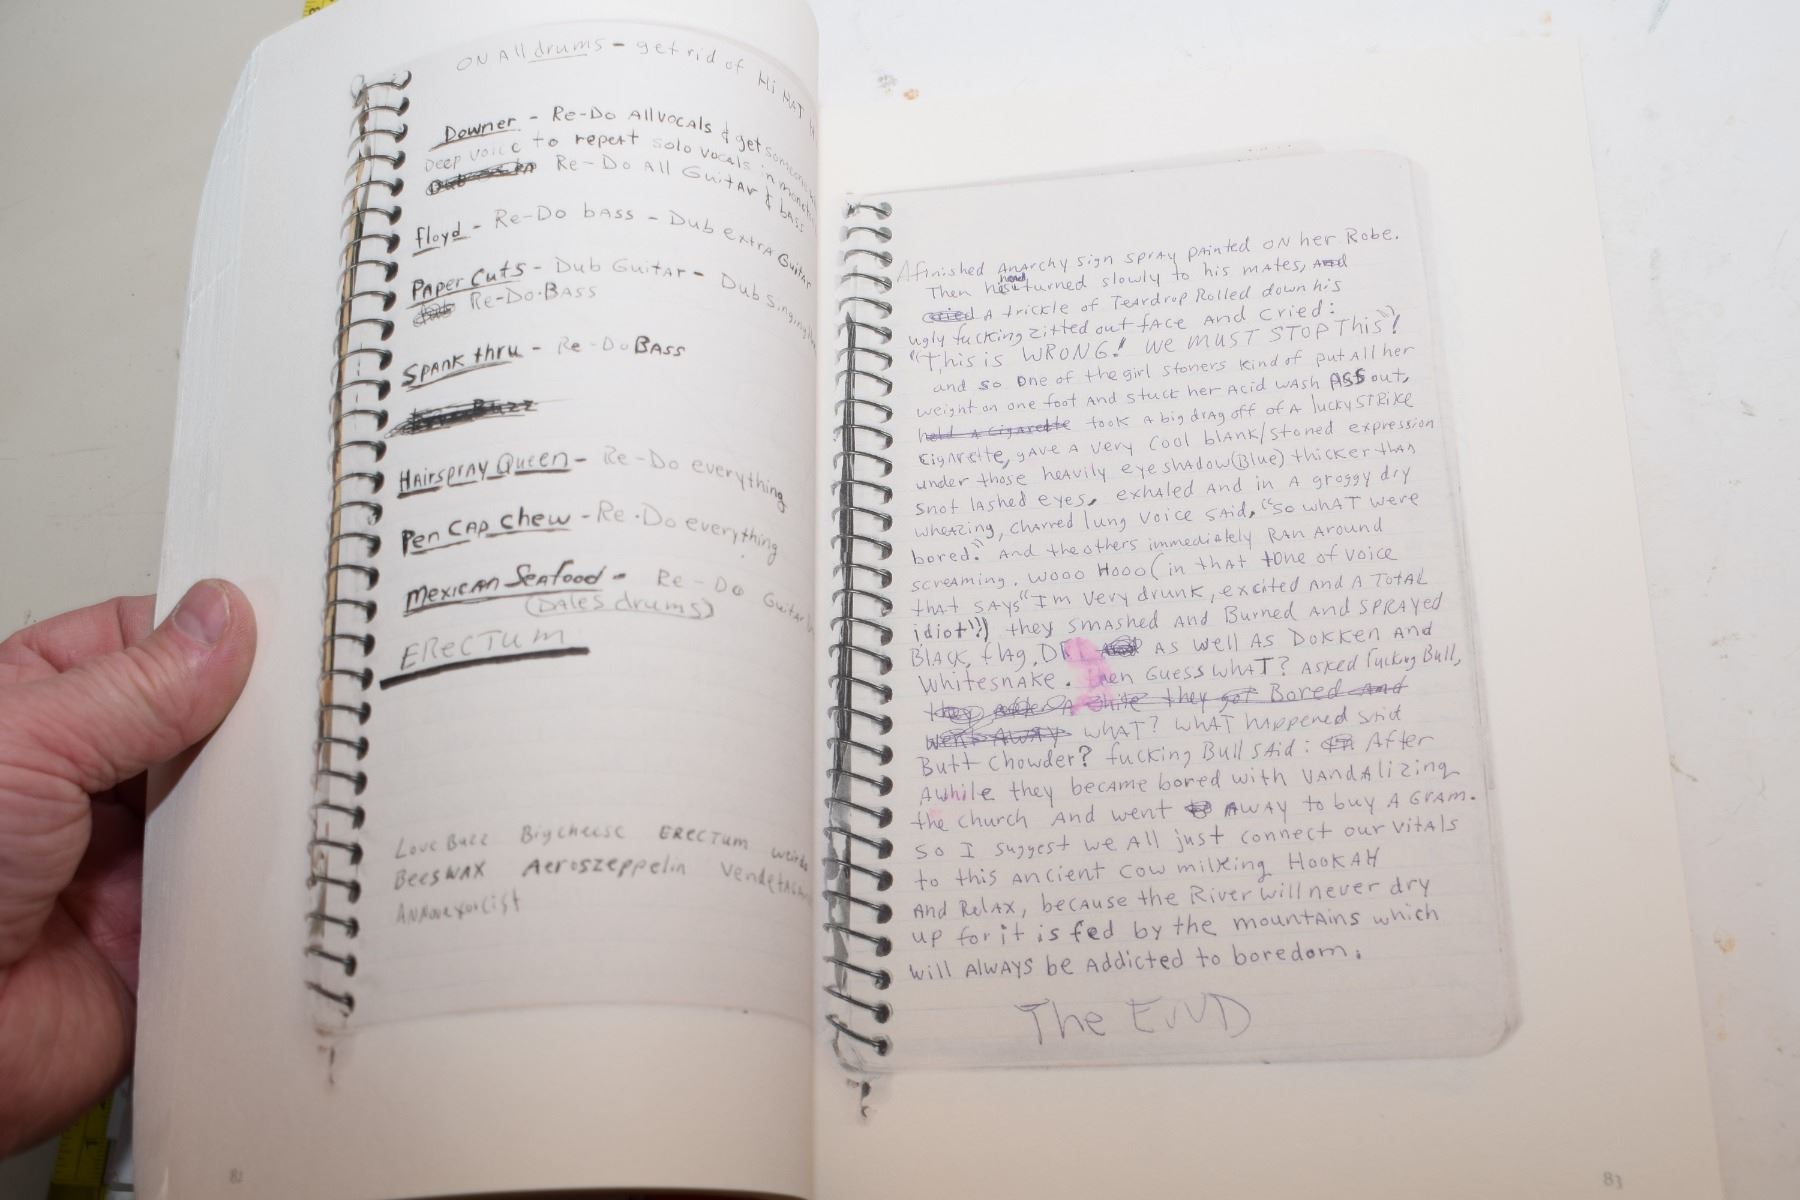 ON All drums - get rid of Hi HAT
Downer - Re-Do All vocals & get someone
Deep voice to repeat solo vocals in
Re-Do All Guitar & bass
floyd - Re-Do bass - Dub extra Guitar
Paper Cuts - Dub Guitar - Dub singing
Re-Do-BASS
Spank thru - Re-Do BASS
Hairspray Queen - Re-Do everything
Pen CAP Chew - Re-Do everything
Mexican Seafood - Re-Do Guitar
(DALES drums)
ERECTUM
Love Buzz Big cheese ERECTUM weirdo
BEESWAX Aeroszeppelin Vendetta
Annorexorcist
82
A finished Anarchy sign spray painted ON her Robe.
Then his head turned slowly to his mates, and
cried A trickle of Teardrop Rolled down his
ugly fucking zitted out face and cried:
"This is WRONG! WE MUST STOP THis"!
and so one of the girl stoners kind of put All her
weight on one foot and stuck her Acid wash ASS out,
held a cigarette took A big drag off of A lucky STRIKE
cigarette, gave A very cool blank/stoned expression
under those heavily eyeshadow(Blue) thicker than
snot lashed eyes, exhaled and in A groggy dry
wheazing, charred lung voice said, "so what were
bored." And the others immediately Ran Around
screaming. WOOO HOOO (in that tone of voice
that says "I'm very drunk, excited and A Total
idiot"!) they smashed and Burned and SPRAYED
BLACK, flag, D as well As Dokken and
Whitesnake. then Guess what? Asked fucking Bull,
they after A while they got Bored and
went AWAY WHAT? WHAT happened said
Butt Chowder? fucking Bull said: After
Awhile they became bored with vandalizing
the church and went AWAY to buy A Gram.
So I suggest we All just connect our vitals
to this ancient cow milking HOOKAH
And Relax, because the River will never dry
up for it is fed by the mountains which
will Always be addicted to boredom.
The END
83